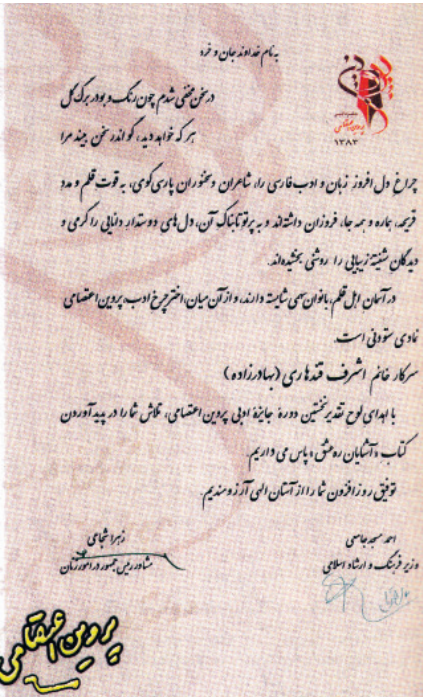 به نام خداوند جان و خرد
در سخن مخفی شدم چون رنگ و بو در برگ گل
هر که خواهد دید، گو اندر سخن بیند مرا
پروین اعتصامی
۱۳۸۳
چراغ دل افروز زبان و ادب فارسی را، شاعران و سخنوران پارسی گوی، به قوت قلم و مدد
قریحه، هماره و همه جا، فروزان داشته‌اند و به پرتو تابناک آن، دل های دوستدار دانایی را گرمی و
دیدگان شیفته زیبایی را روشنی بخشیده‌اند.
در آسمان اهل قلم، بانوان سهمی شایسته دارند، و از آن میان، اختر چرخ ادب، پروین اعتصامی
نمادی ستودنی است.
سرکار خانم اشرف قندهاری (بهادرزاده)
با اهدای لوح تقدیر نخستین دورهٔ جایزهٔ ادبی پروین اعتصامی، تلاش شما را در پدید آوردن
کتاب «آشنایان ره عشق» پاس می داریم.
توفیق روزافزون شما را از آستان الهی آرزومندیم.
احمد مسجد جامعی
وزیر فرهنگ و ارشاد اسلامی
زهرا شجاعی
مشاور رئیس جمهور در امور زنان
پروین اعتصامی